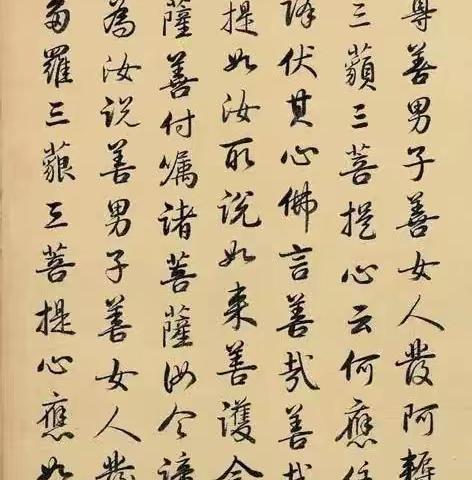 尊善男子善女人發阿耨
三藐三菩提心云何應住
降伏其心佛言善哉善哉
提如汝所說如來善護念
薩善付嘱諸菩薩汝今諦
為汝說善男子善女人發
多羅三藐三菩提心應如